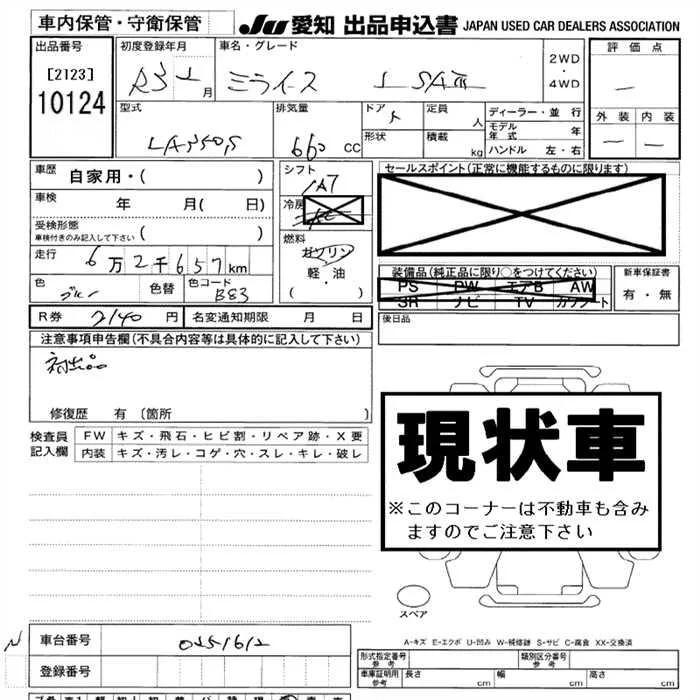 車内保管・守衛保管 JU 愛知 出品申込書 JAPAN USED CAR DEALERS ASSOCIATION
出品番号 初度登録年月 車名・グレード 2WD・4WD 評価点
[2123] R3 月 ミライース L SAⅢ
10124 型式 排気量 ドア 定員 人 ディーラー・並 行 外装 内装
LA350S 660 CC 5 形状 積載 kg モデル年式 年
ハンドル 左・右
車歴 自家用・( ) シフト セールスポイント(正常に機能するものに限ります)
車検 年 月( 日) AT
冷房
受検形態 車検付きのみ記入して下さい ( ) 燃料
走行 6万2千657km ガソリン 装備品(純正品に限り○をつけてください) 新車保証書
色 色替 色コード B83 軽・油 PS PW エアB AW 有・無
( ) SR ナビ TV カワシート
R券 2140 円 名変通知期限 月 日 後日品
注意事項申告欄(不具合内容等は具体的に記入して下さい)
初出品
修復歴 有 (箇所 )
検査員記入欄 FW キズ・飛石・ヒビ割・リペア跡・X要
内装 キズ・汚レ・コゲ・穴・スレ・キレ・破レ
現状車
※このコーナーは不動車も含み
ますのでご注意下さい
スペア
A-キズ E-エクボ U-凹み W-補修跡 S-サビ C-腐食 XX-交換済
車台番号 0251612
登録番号
形式指定番号 参考 類別区分番号 参考
車庫証明用 参考 長さ cm 幅 cm 高さ cm